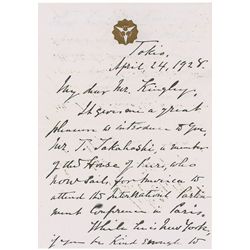 Tokio,
April 24, 1928.
My dear Mr. Kingley,
It gives me a great
pleasure to introduce to you
Mr. T. Takahashi, a member
of the House of Peers, who
now sails for America to
attend the International Parlia
ment Conference in Paris.
While he is in New York,
if you be kind enough to